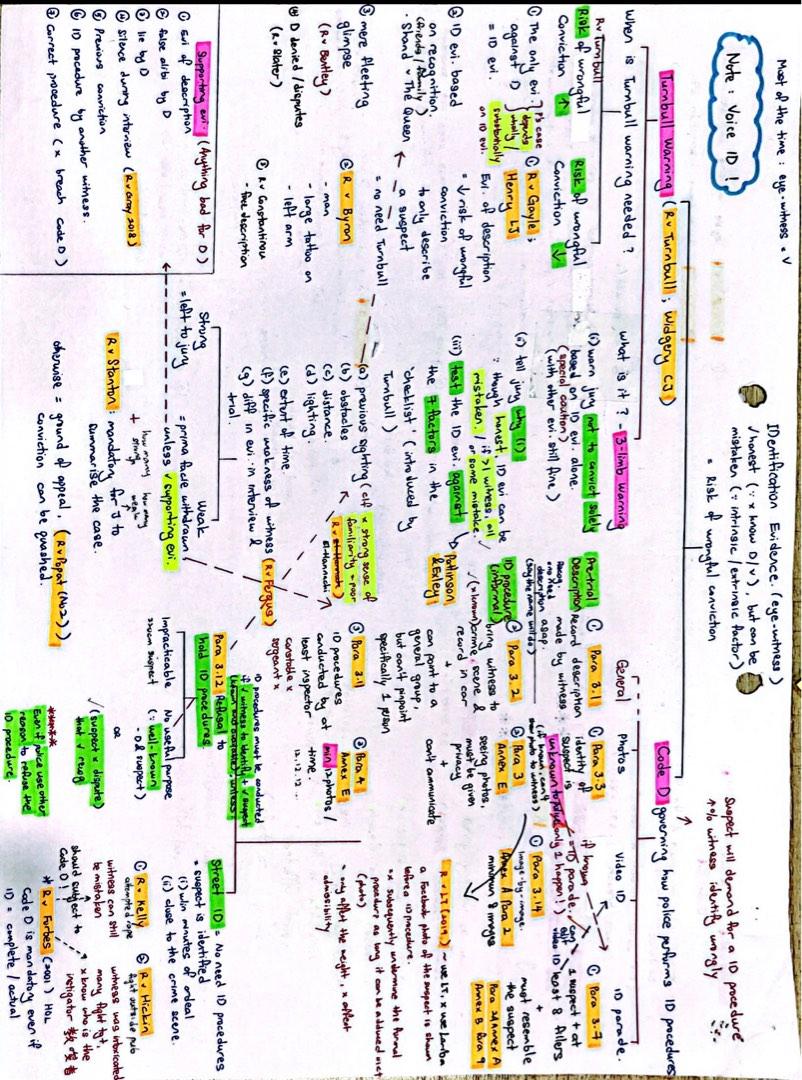 Most of the time : eye-witness = V
Note : Voice ID !
IDentification Evidence. (eye-witness)
✓ honest (∵ x know D / v), but can be
mistaken (∵ intrinsic / extrinsic factor)
= Risk of wrongful conviction
Suspect will demand for a ID procedure
Turnbull Warning (R v Turnbull ; Widgery CJ)
When is Turnbull warning needed ?
R v Turnbull
Risk of wrongful
Conviction ↑
① The only evi.
against D
= ID evi.
P's case
depends
wholly /
substantially
on ID evi.
② ID evi. based
on recognition.
(friends / family)
· Shand v The Queen
③ mere fleeting
glimpse
(R v Bentley)
(4) D denied / disputes
(R v Slater)
Risk of wrongful
Conviction ↓
① R v Gayle ;
Henry LJ
Evi. of description
= ↓ risk of wrongful
conviction
to only describe
a suspect
= no need Turnbull
② R v Byron
- man
- large tattoo on
- left arm
③ R v Constantinou
- free description
What is it ? - 3-limb Warning
(i) warn jury not to convict solely
based on ID evi. alone.
(special caution)
(with other evi. still fine)
(ii) tell jury why (i)
∵ though honest, ID evi can be
mistaken. / if >1 witness, all
or some mistake.
(iii) test the ID evi. against
the 7 factors in the
'checklist' (introduced by
Turnbull)
(a) previous sighting
x strong sense of
familiarity = poor
(b) obstacles
(c) distance.
(d) lighting.
(e) extent of time.
(f) specific weakness of witness
(R v Fergus)
(g) diff in evi. in interview &
trial.
Strong
= left to jury
Weak
= prima facie withdrawn
unless ✓ supporting evi.
R v Stanton : mandatory for J to
summarise the case.
+ how many strong
how many weak
otherwise = ground of appeal,
conviction can be quashed.
(R v Popat (No 2))
Supporting evi. (Anything bad for D)
① Evi of description
② False alibi by D
③ lie by D
④ Silence during interview (R v Gray 2018)
⑤ Previous conviction
⑥ ID procedure by another witness.
⑦ Correct procedure (x breach Code D)
Code D governing how police performs ID procedures
General
(Pre-trial)
Description
① Para 3.1
Record description
made by witness
description asap.
ID procedure
(informal)
② Para 3.2
bring witness to
crime scene &
record in car
+
can point to a
general group,
but can't pinpoint
specifically 1 person
Pattinson
& Exley
③ Para 3.11
ID procedures
conducted by at
least inspector
constable x
sergeant x
Photos
① Para 3.3
identity of
suspect is
unknown to police
② Para 3
Annex E
seeing photos,
must be given
privacy
+
can't communicate
③ Para 4
Annex E
min 12 photos /
time.
12, 12, 12 ...
Video ID
① Para 3.14
image-by-image.
Annex A Para 2
minimum 8 images
ID parade.
① Para 3.7
1 suspect + at
least 8 fillers
+
must resemble
the suspect
Para 2A Annex A
Annex B Para 9
R v LT (2019)
a Facebook photo of the suspect is shown
before ID procedure.
= x subsequently undermine the formal
procedure as long it can be adduced in ct
(photo)
= may affect the weight, x affect
admissibility
ID procedures must be conducted
Para 3.12 Refusal to
hold ID procedures.
Impracticable
No useful purpose
(∵ well-known
- D & suspect)
or
✓ (suspect x dispute)
that ✓ recog
Even if police use other
reason to refuse the
ID procedure.
Street ID = No need ID procedures
= suspect is identified
(i) w/in minutes of ordeal
(ii) close to the crime scene.
① R v Kelly
attempted rape
witness can still
be mistaken
should subject to
Code D !
② R v Hickin
fight outside pub
witness was intoxicated
many fight tgt,
x know who is the
instigator
* R v Forbes (2001) HOL
Code D is mandatory even if
ID = complete / actual